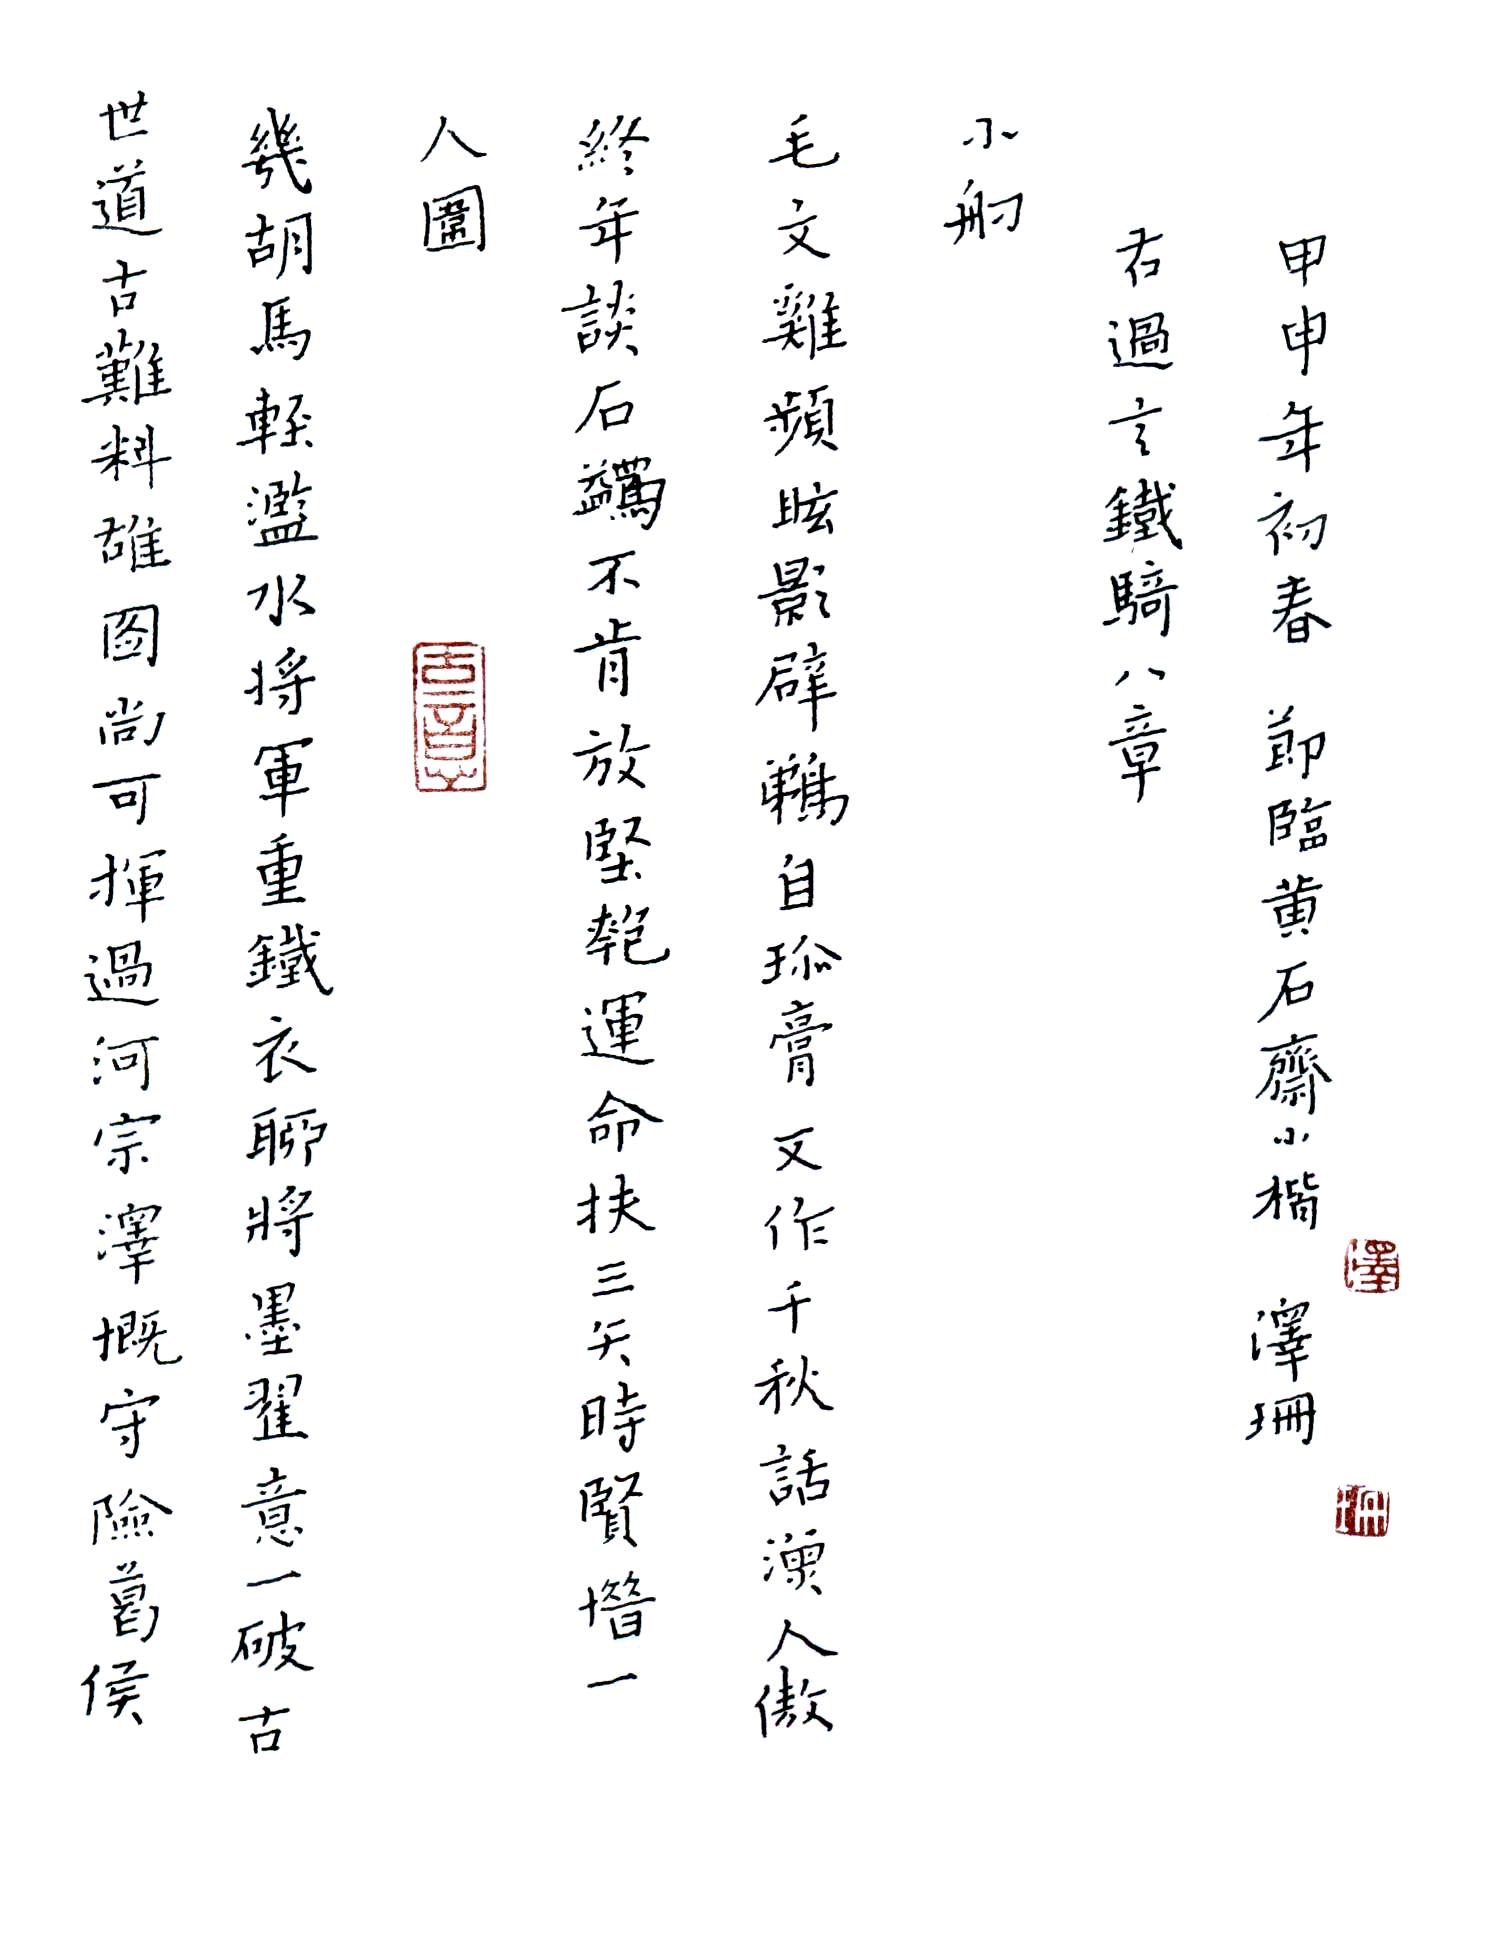 世道古難料雄图尚可揮過河宗澤慨守險葛侯
幾胡馬輕濫水將軍重鐵衣聊將墨翟意一破古
人圍
終年談石蠲不肯放堅匏運命扶三矢時賢增一
毛文雞頻眩影辟自珎膏又作千秋話漁人傲
小舠
右過言鐵騎八章
甲申年初春 節臨黄石齋小楷 澤珊
吉意
澤
珊